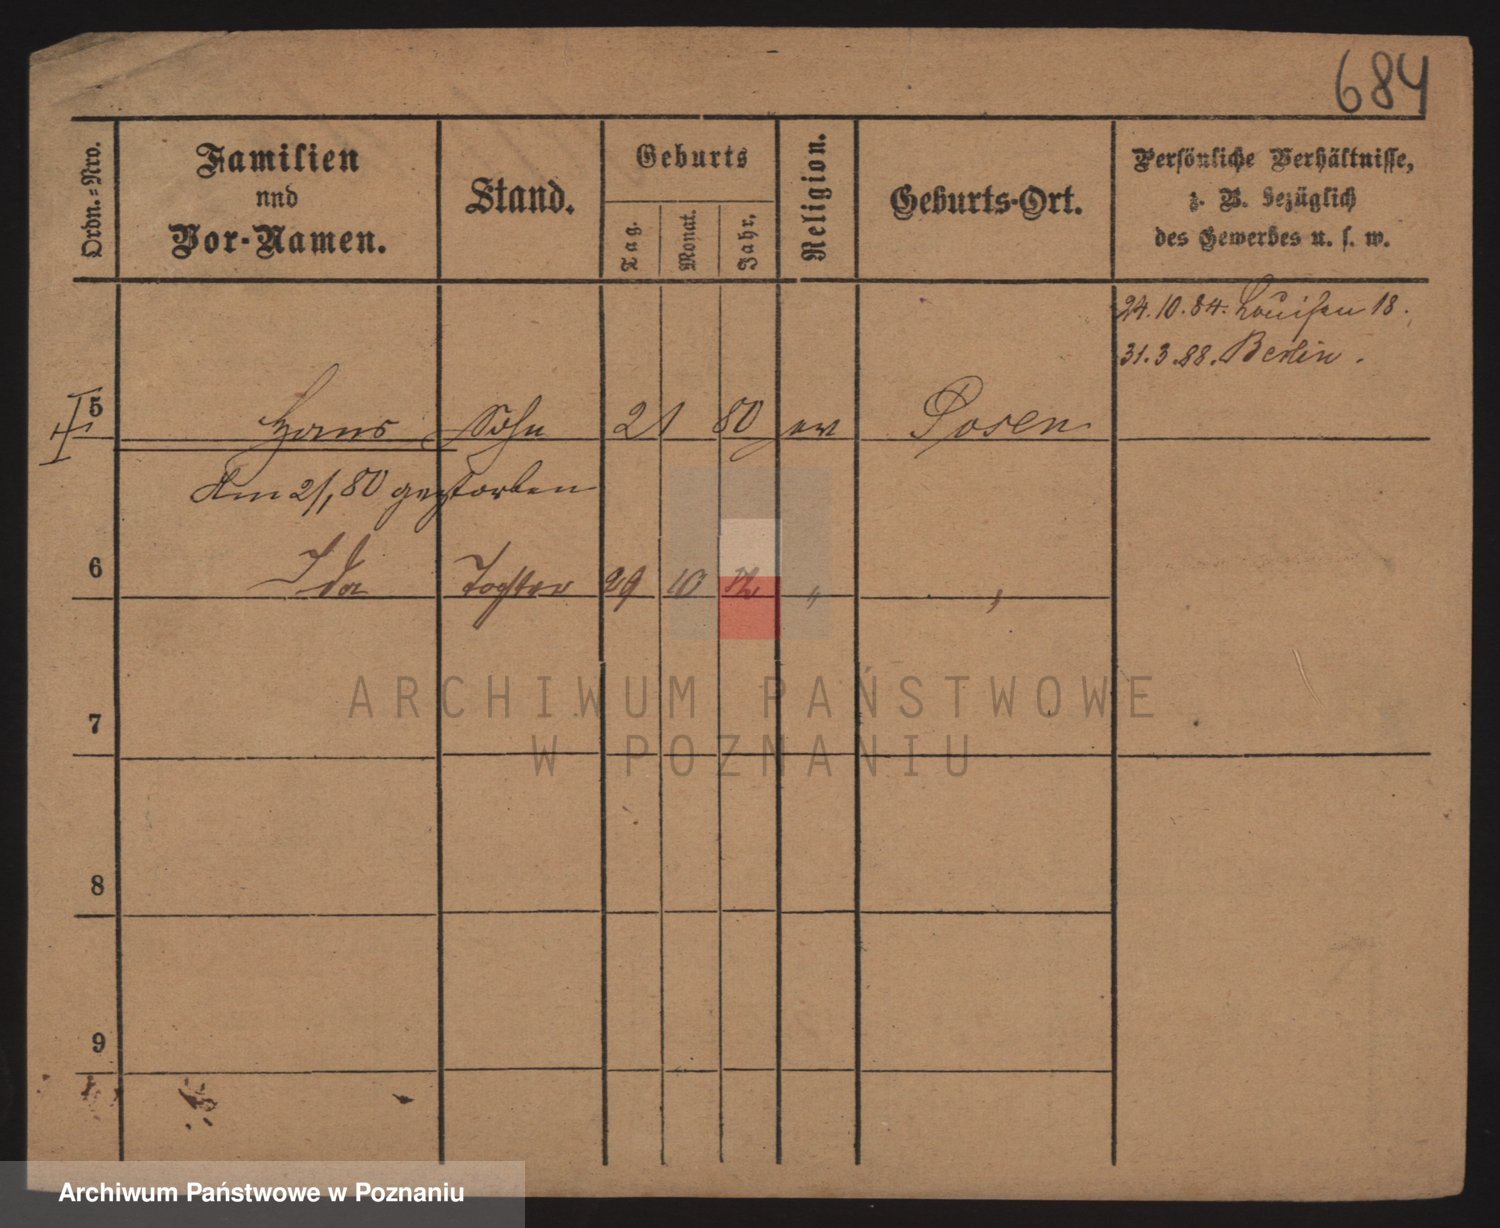 684
Ordn.-Nro.
Familien
nnd
Vor-Namen.
Stand.
Geburts
Tag.
Monat.
Jahr.
Religion.
Geburts-Ort.
Persönliche Verhältnisse,
z. B. bezüglich
des Gewerbes u. s. w.
24.10.84. Louisen 18.
31.3.88. Berlin.
5 Hans Sohn 21 80 ev Posen
Am 21, 80 gestorben
6 Ida Tochter 29 10 82 " "
ARCHIWUM PAŃSTWOWE
W POZNANIU
7
8
9
Archiwum Państwowe w Poznaniu